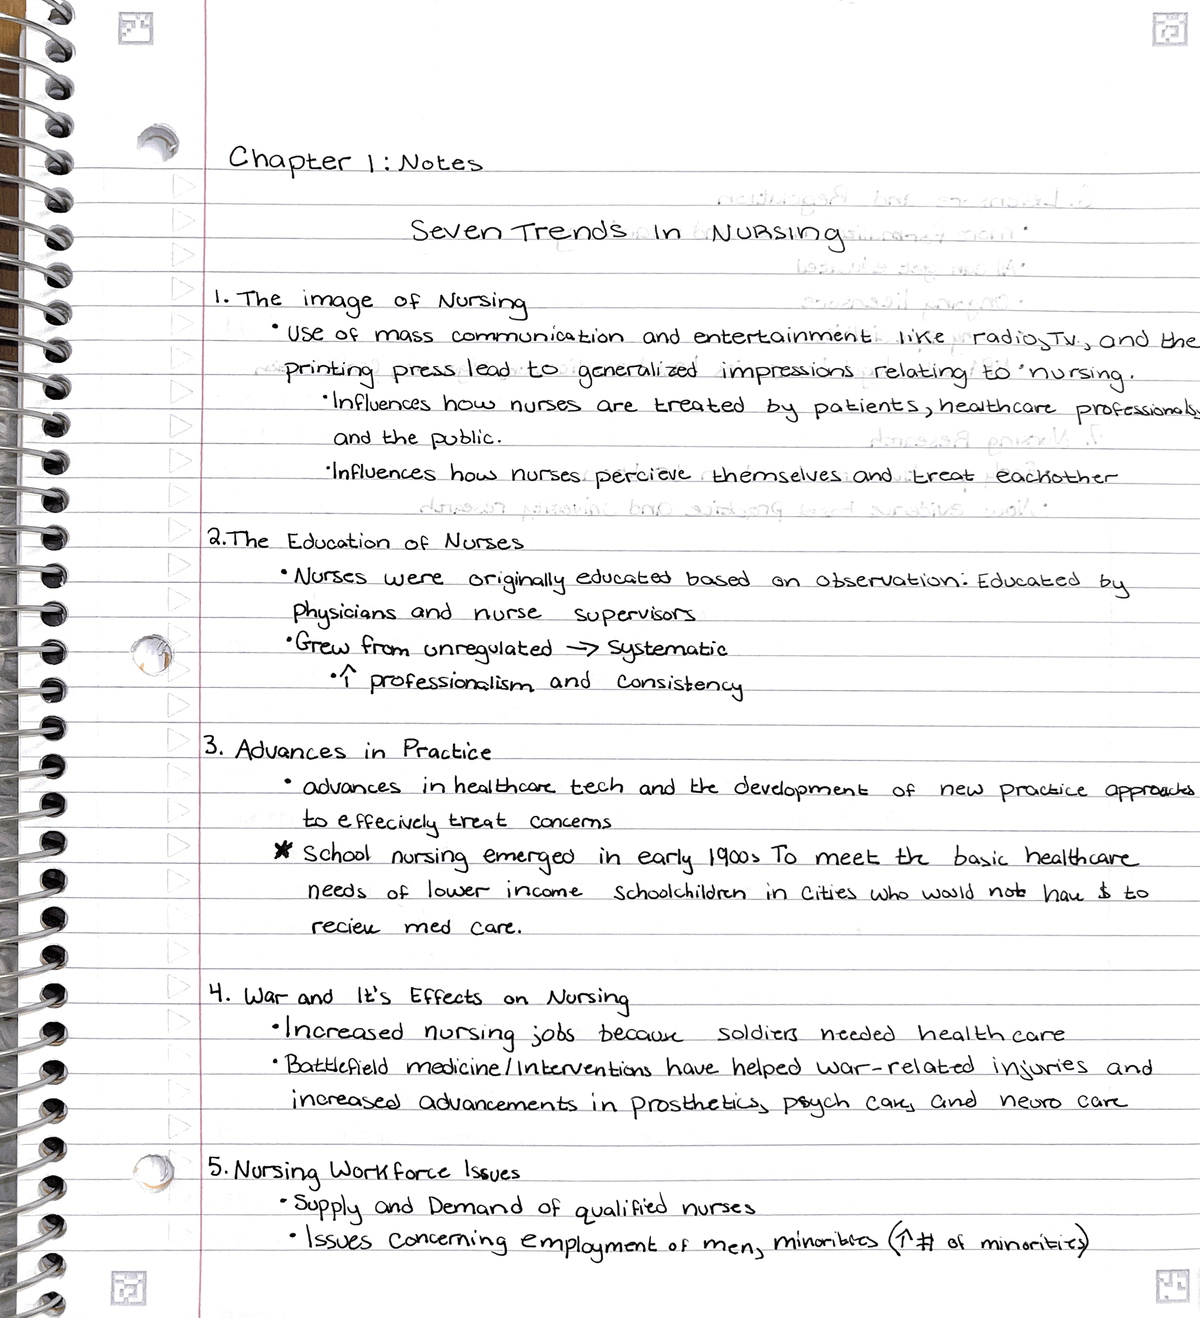 Chapter 1: Notes
Seven Trends In Nursing
1. The image of Nursing
• Use of mass communication and entertainment like radio, Tv, and the
printing press lead to generalized impressions relating to nursing.
• Influences how nurses are treated by patients, healthcare professionals,
and the public.
• Influences how nurses percieve themselves and treat eachother
2. The Education of Nurses
• Nurses were originally educated based on observation: Educated by
physicians and nurse supervisors
• Grew from unregulated → Systematic
• ↑ professionalism and consistency
3. Advances in Practice
• advances in healthcare tech and the development of new practice approachs
to effecively treat concerns
* School nursing emerged in early 1900s To meet the basic healthcare
needs of lower income schoolchildren in cities who would not have $ to
recieve med care.
4. War and It's Effects on Nursing
• Increased nursing jobs because soldiers needed health care
• Battlefield medicine/Interventions have helped war-related injuries and
increased advancements in prosthetics, psych care, and neuro care
5. Nursing Workforce Issues
• Supply and Demand of qualified nurses
• Issues concerning employment of men, minorities (↑ # of minorities)